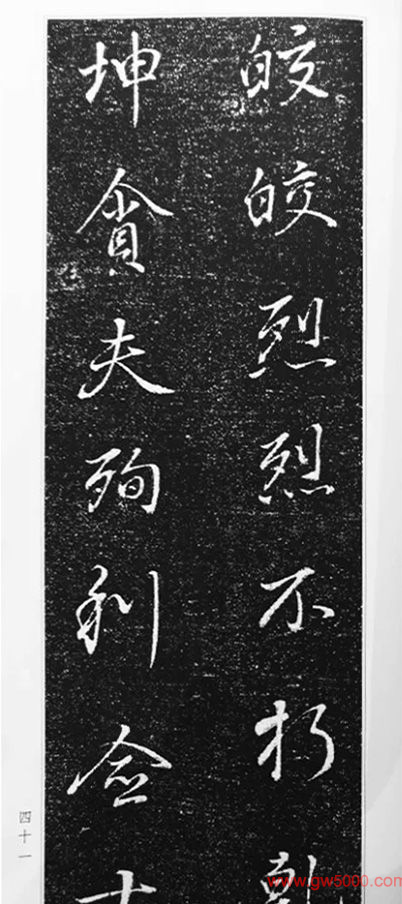 皎皎烈烈不朽乾
坤貪夫殉利
四十一
www.gw5000.com